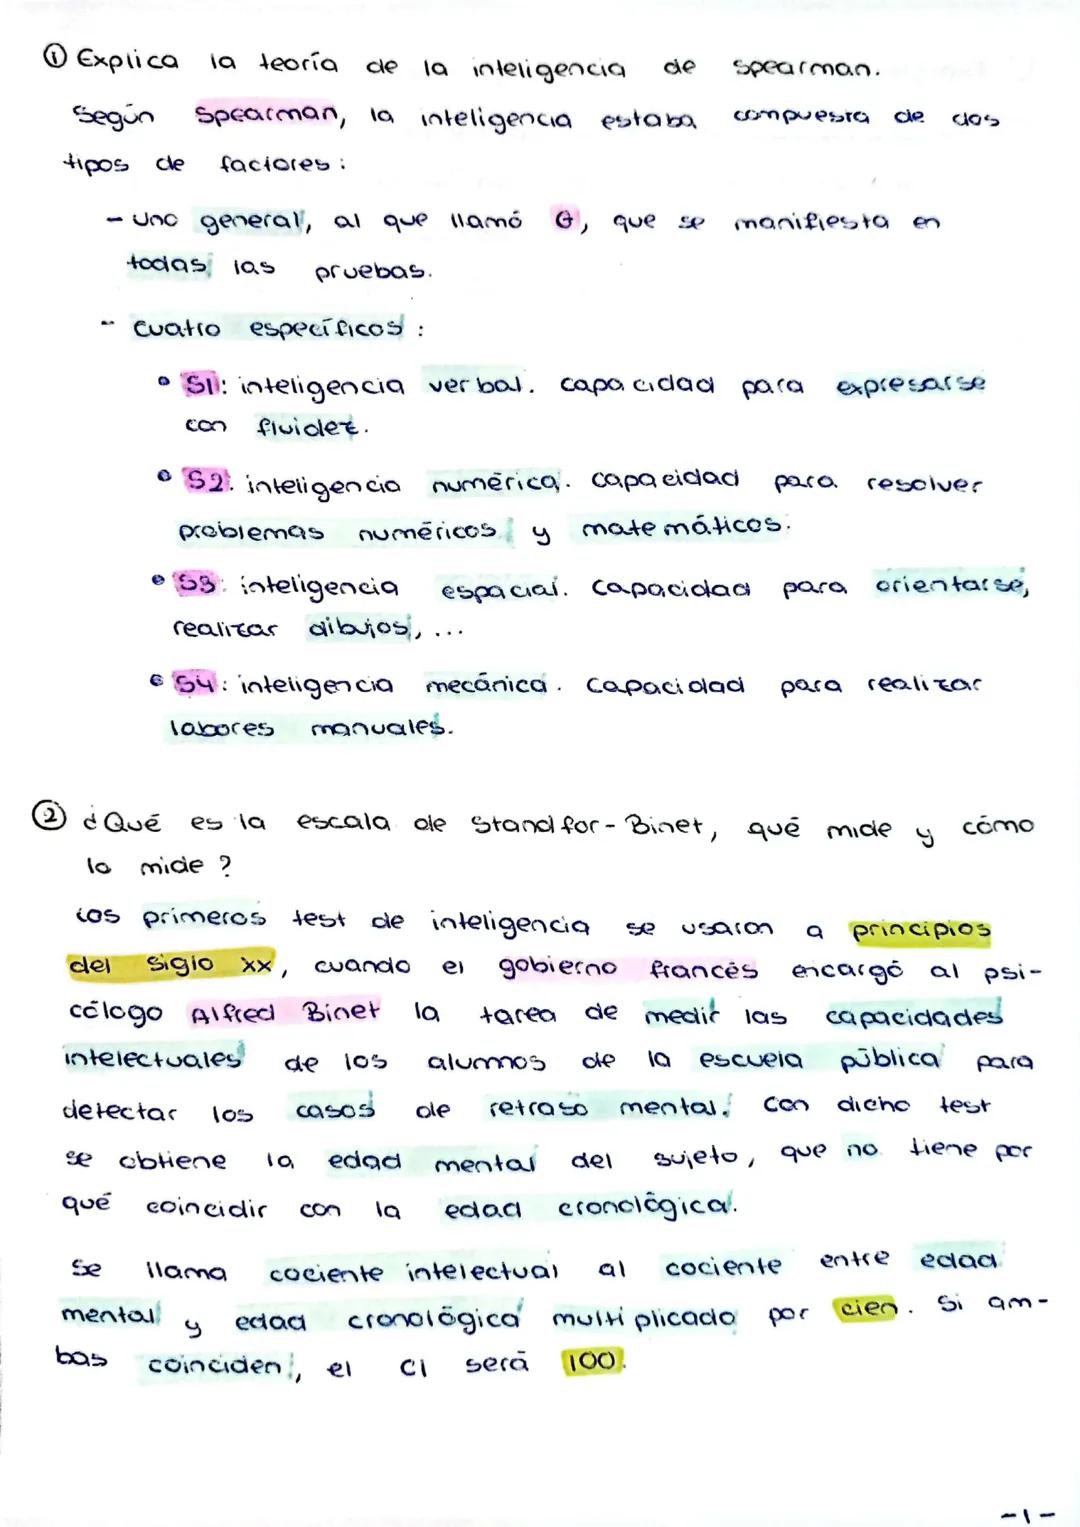 ① Explica la teoría de la inteligencia de Spearman.
Según Spearman, la inteligencia estaba compuesta de dos
tipos de factores:
- Uno general, al que llamó G, que se manifiesta en
todas las pruebas.
- Cuatro específicos:
• S1: inteligencia verbal. Capacidad para expresarse
con fluidez.
• S2: inteligencia numérica. Capacidad para resolver
problemas numéricos y matemáticos.
• S3: inteligencia espacial. Capacidad para orientarse,
realizar dibujos, ...
• S4: inteligencia mecánica. Capacidad para realizar
labores manuales.
② ¿Qué es la escala de Standfor-Binet, qué mide y cómo
lo mide?
Los primeros test de inteligencia se usaron a principios
del siglo XX, cuando el gobierno francés encargó al psi-
cólogo Alfred Binet la tarea de medir las capacidades
intelectuales de los alumnos de la escuela pública para
detectar los casos de retraso mental. Con dicho test
se obtiene la edad mental del sujeto, que no tiene por
qué coincidir con la edad cronológica.
Se llama cociente intelectual al cociente entre edad
mental y edad cronológica multiplicado por cien. Si am-
bas coinciden, el CI será 100.
-1-